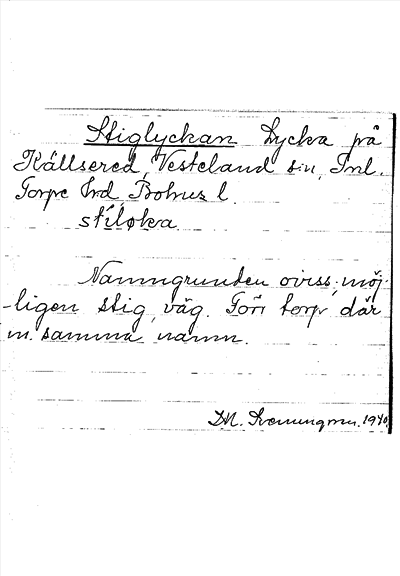 Stiglyckan Lycka på
Källsered, Vesteland s:n, Inl.
Torpe hrd, Bohus l.
stíløkra.
Namngrunden oviss, möj-
ligen stig, väg. Förr torp där
m. samma namn.
1940